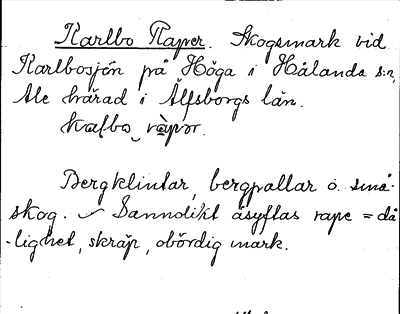 Karlbo Raper. Skogsmark vid
Karlbosjön på Höga i Hålanda s:n,
Ale härad i Älfsborgs län.
kalbo ràpər.
Bergklintar, bergpallar o. små-
skog. Sannolikt åsyftas rape = då
-lighet, skräp, obördig mark.